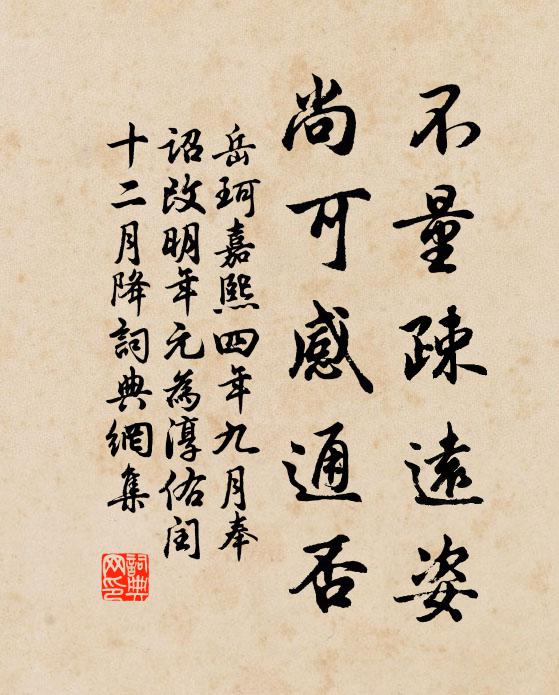 不量疎遠姿
尚可感通否
岳珂嘉熙四年九月奉
詔改明年元為淳佑閏
十二月降詞典網集
詞典
网印